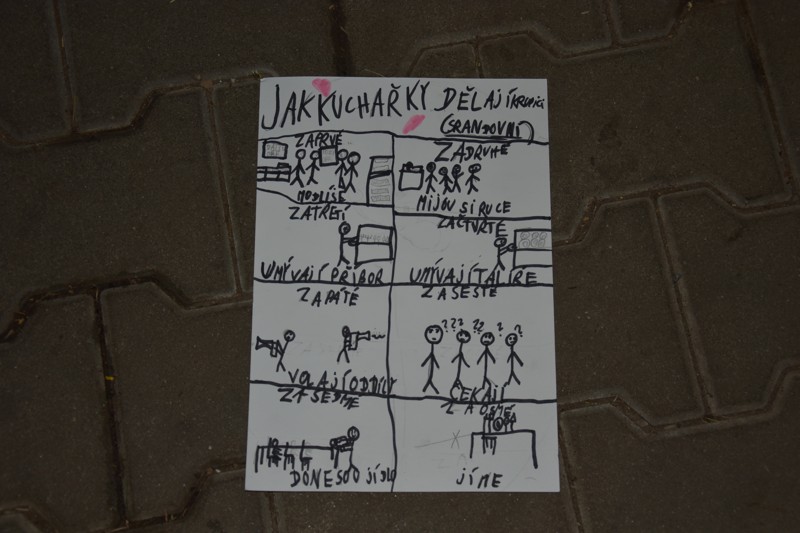 JAK KUCHAŘKY DĚLAJÍ
(SRANDOVNÍ)
ZAPRVÉ
ZADRUHÉ
MIJOU SI RUCE
ZATŘETÍ
UMÝVAJÍ PŘÍBOR
ZAČTVRTÉ
UMÝVAJÍ TALÍŘE
ZAPÁTÉ
VOLAJÍ ODDÍLY
ZAŠESTÉ
??? ?? ? ?
ČEKAJÍ
ZASEDMÉ
DONESOU JÍDLO
ZAOSMÉ
JÍME